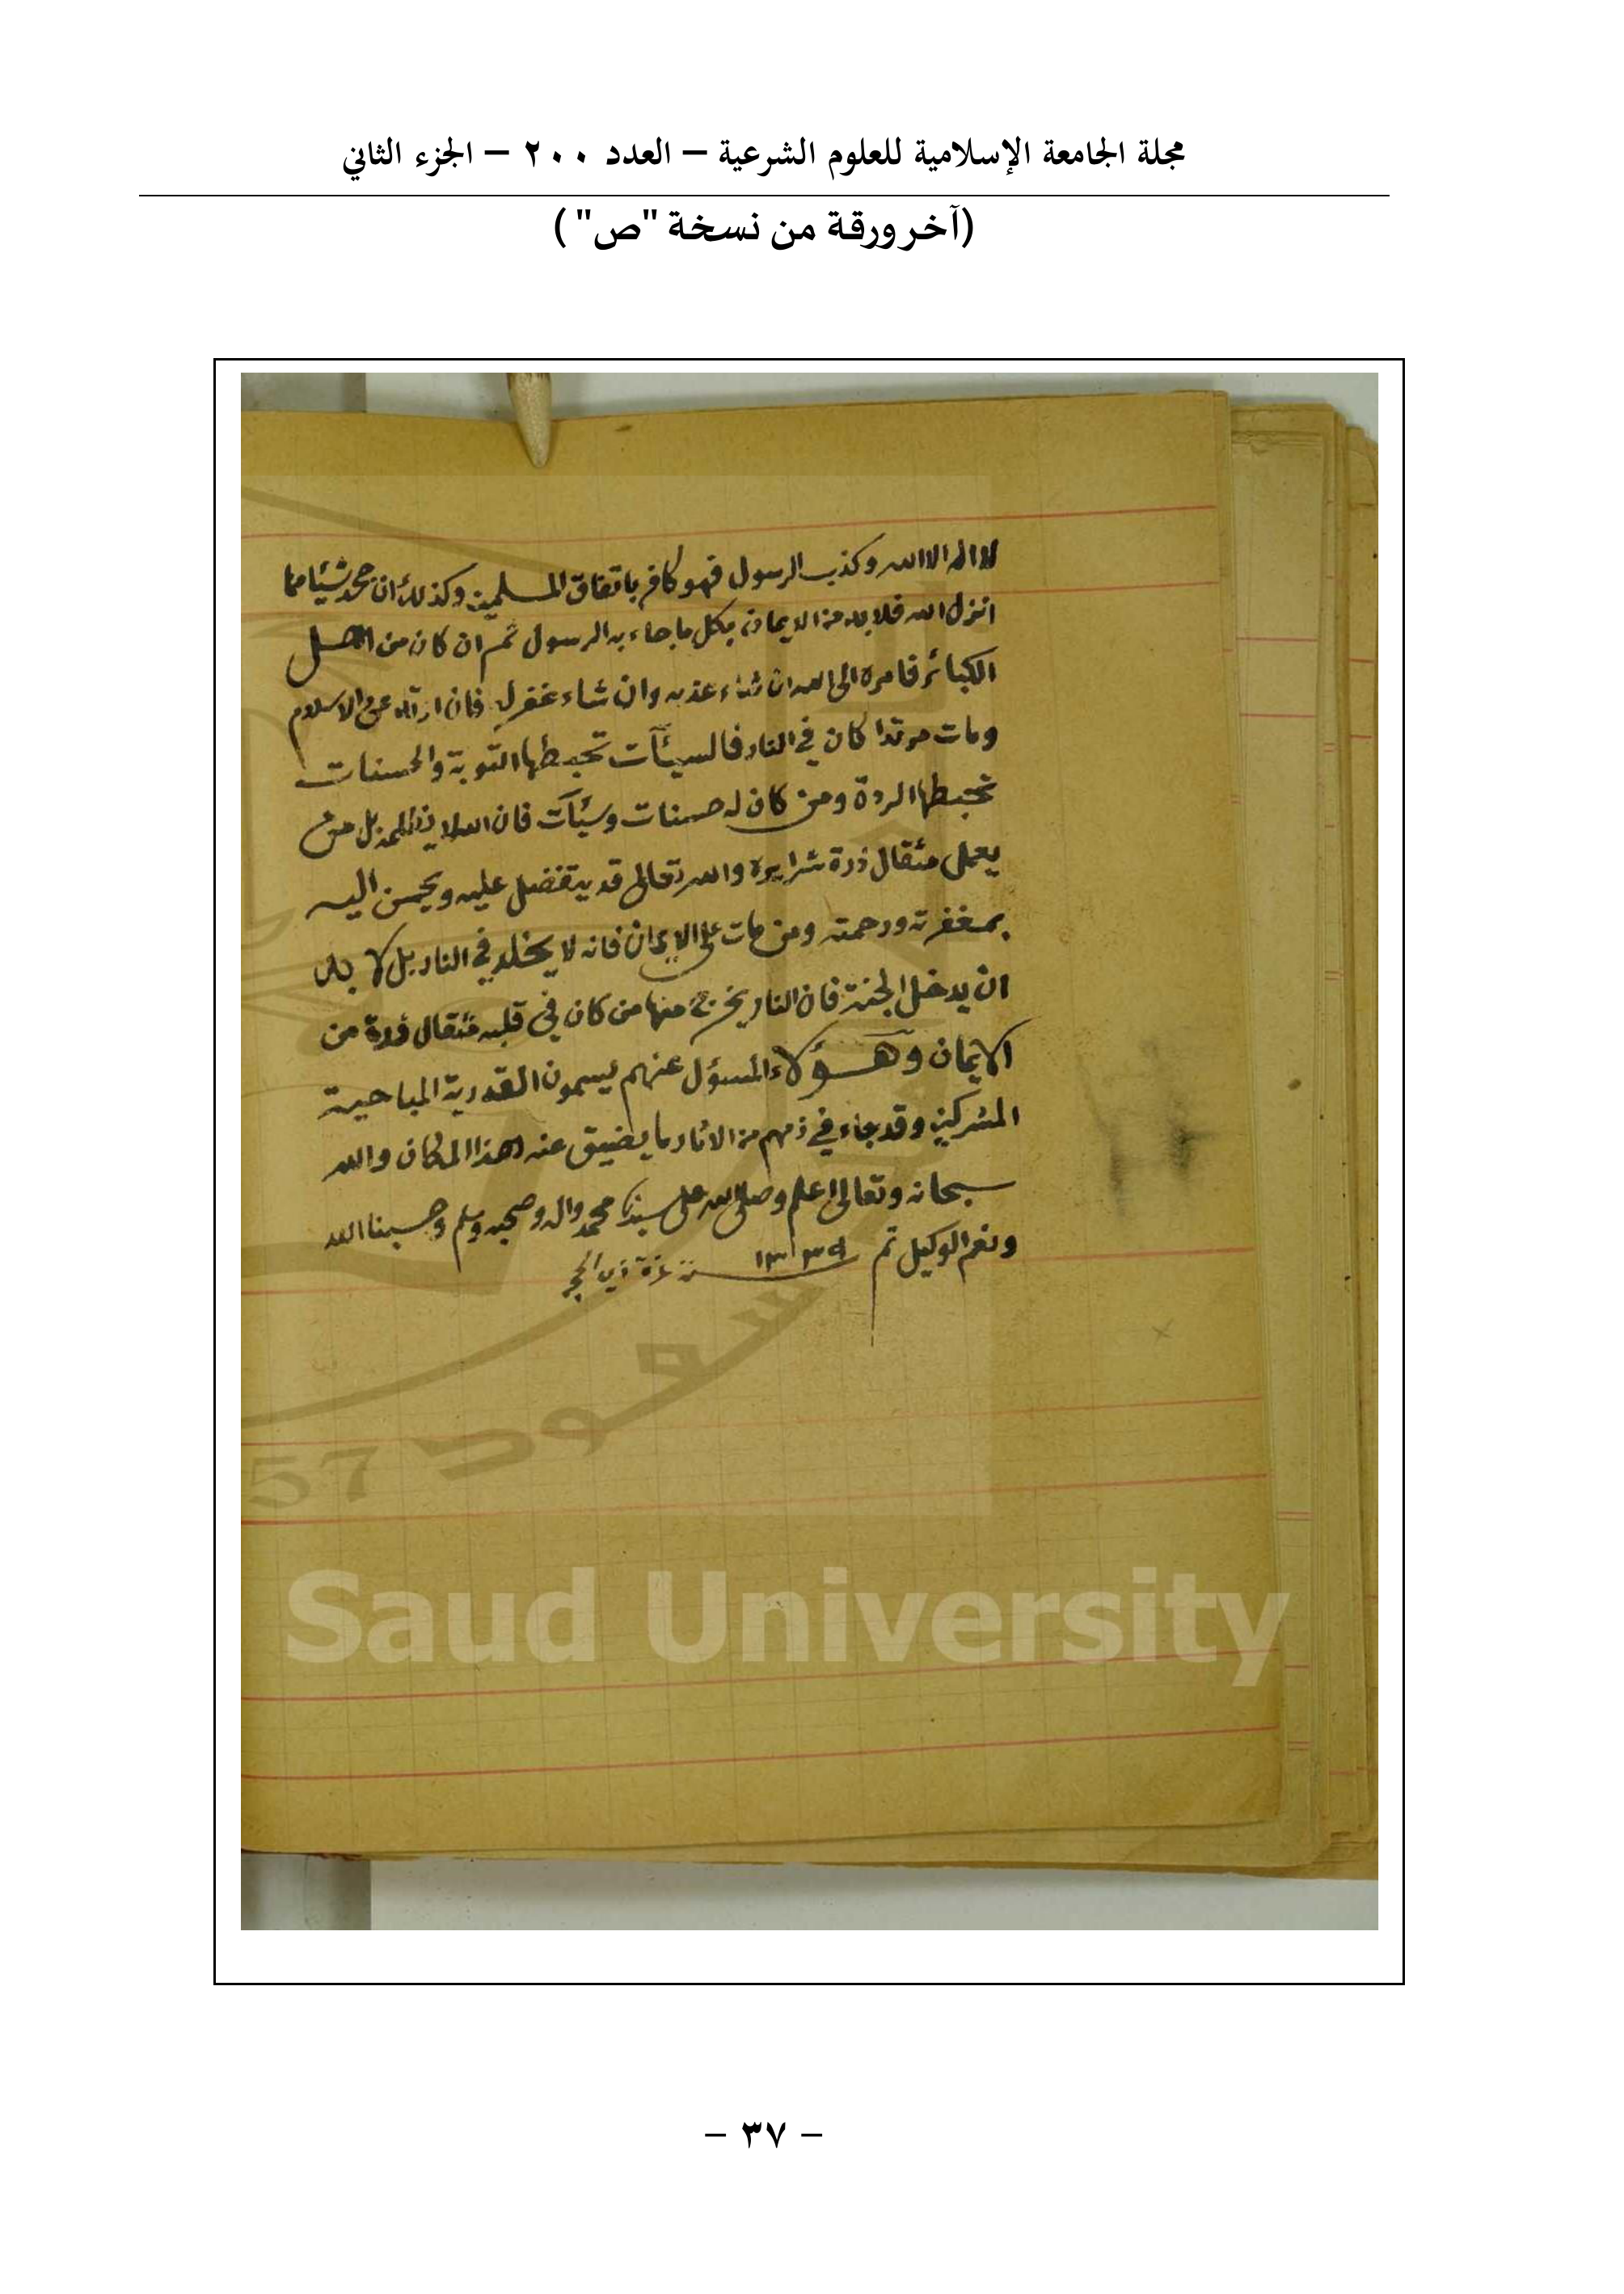 مجلة الجامعة الإسلامية للعلوم الشرعية – العدد ٢٠٠ – الجزء الثاني
(آخر ورقة من نسخة "ص")
لا اله الا الله وكذب الرسول فهو كافر باتفاق المسلمين وكذلك ان جحد شيئا مما
انزل الله فلا بد من الايمان بكل ما جاء به الرسول ثم ان كان من اهل
الكبائر فامره الى الله ان شاء عذبه وان شاء غفر له فان ارتد عن الاسلام
ومات مرتدا كان في النار فالسيئآت تحبطها التوبة والحسنات
تحبطها الردة ومن كان له حسنات وسيئآت فان الله لا يظلمه بل من
يعمل مثقال ذرة شرا يره والله تعالى قد يتفضل عليه ويحسن اليه
بمغفرته ورحمته ومن مات على الايمان فانه لا يخلد في النار بل لا بد
ان يدخل الجنة فان النار يخرج منها من كان في قلبه مثقال ذرة من
الايمان وهؤلاء المسؤل عنهم يسمون القدرية المباحية
المشركين وقد جاء في ذمهم من الاثار ما يضيق عنه هذا المكان والله
سبحانه وتعالى اعلم وصلى الله على سيدنا محمد واله وصحبه وسلم وحسبنا الله
ونعم الوكيل تم سنة غرة ذي الحجة
سعود
57
Saud University
– ٣٧ –